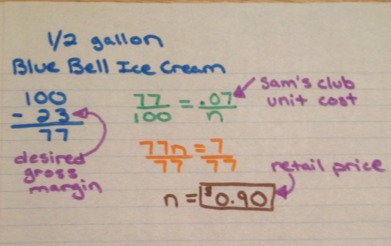 1/2 gallon
Blue Bell Ice Cream
100
- 23
77
desired
gross
margin
77/100 = .07/n
Sam's club
unit cost
77n/77 = 7/77
retail price
n = $0.90